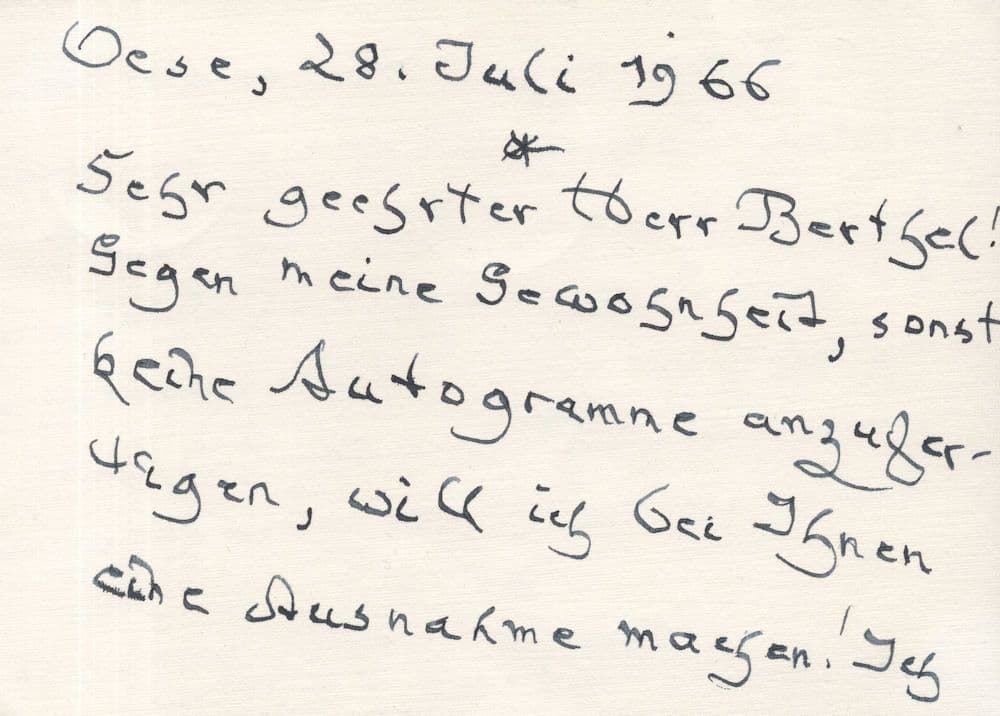 Oese, 28. Juli 1966
*
Sehr geehrter Herr Berthel!
Gegen meine Gewohnheit, sonst
keine Autogramme anzufer-
tigen, will ich bei Ihnen
eine Ausnahme machen! Ich